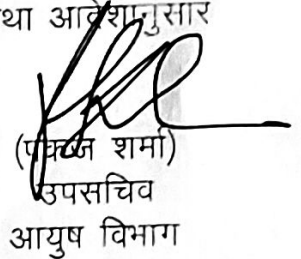 था आदेशानुसार
(पंकज शर्मा)
उपसचिव
आयुष विभाग